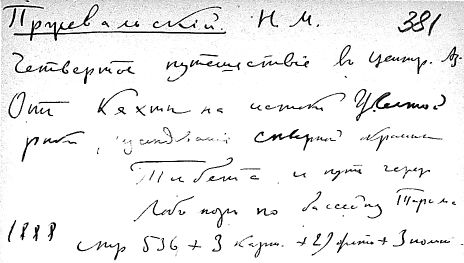 Пржевальскій. Н. М. 381
Четвертое путешествіе въ Центр. Аз.
Отъ Кяхты на истоки Желтой
рѣки, изслѣдованіе сѣверной окраины
Тибета и путь через
Лобъ норъ по бассейну Тарима
1888 стр 536 + 3 карт. + 29 фото +